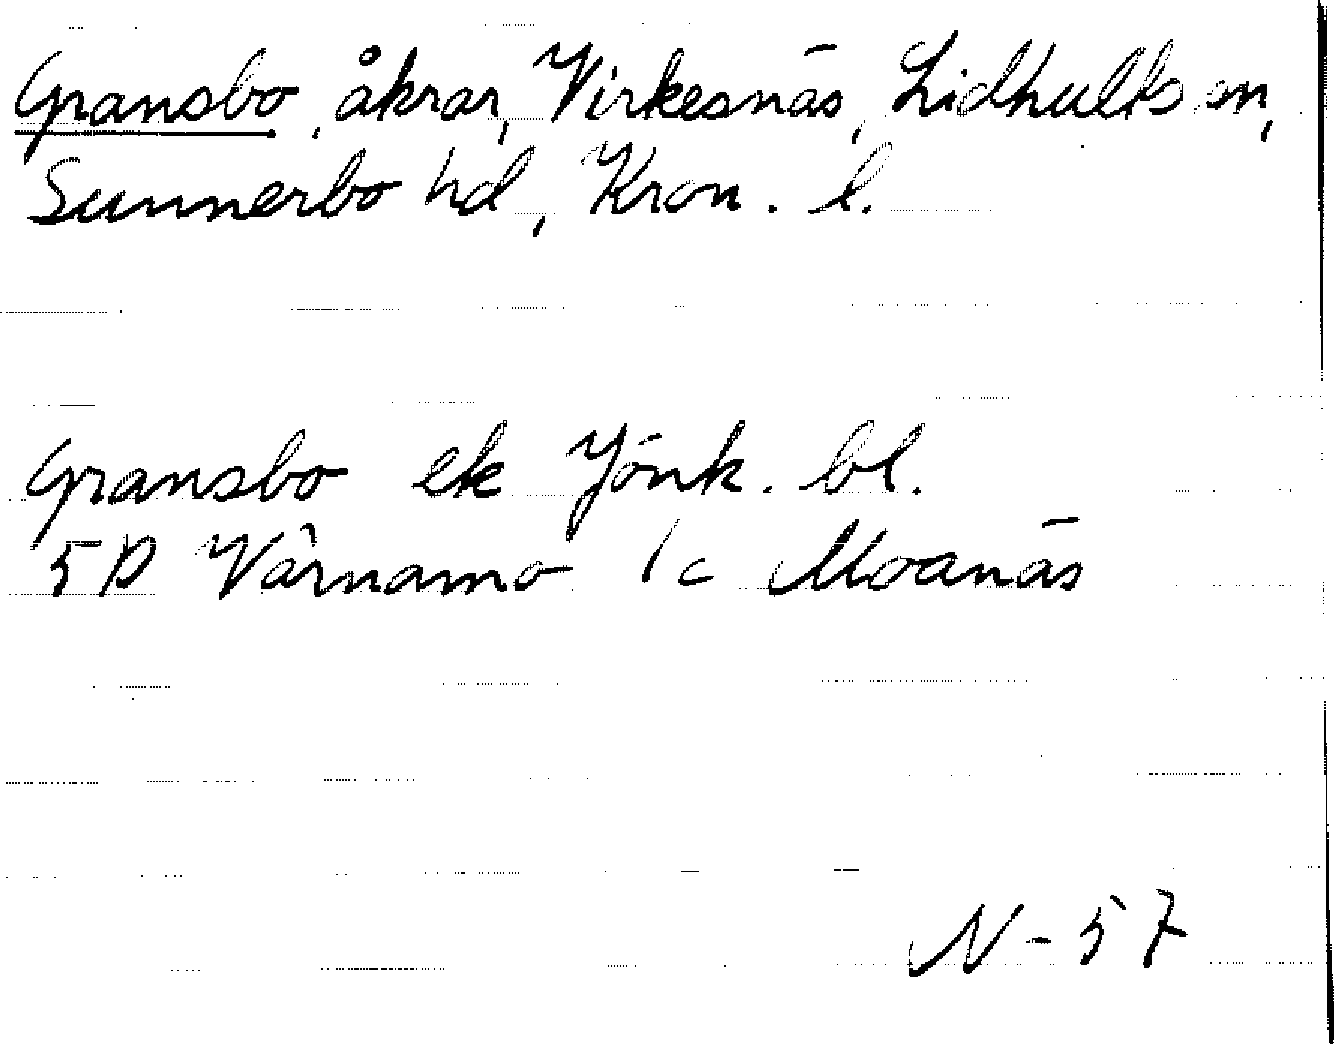 Gransbo, åkrar, Virkesnäs, Lidhults sn,
Sunnerbo hd, Kron. l.
Gransbo ek Jönk. bl.
5D Värnamo 1c Moanäs
N-57